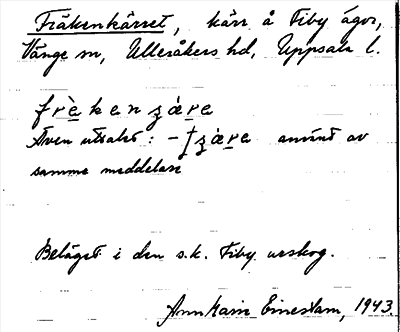 Fräkenkärret, kärr å Fiby ägor,
Vänge sn, Ulleråkers hd, Uppsala l.
frὲkenzàre
Även uttalat: -ʃzàre använt av
samma meddelare
Beläget i den s.k. Fiby urskog.
Ann Karin Einestam, 1943.